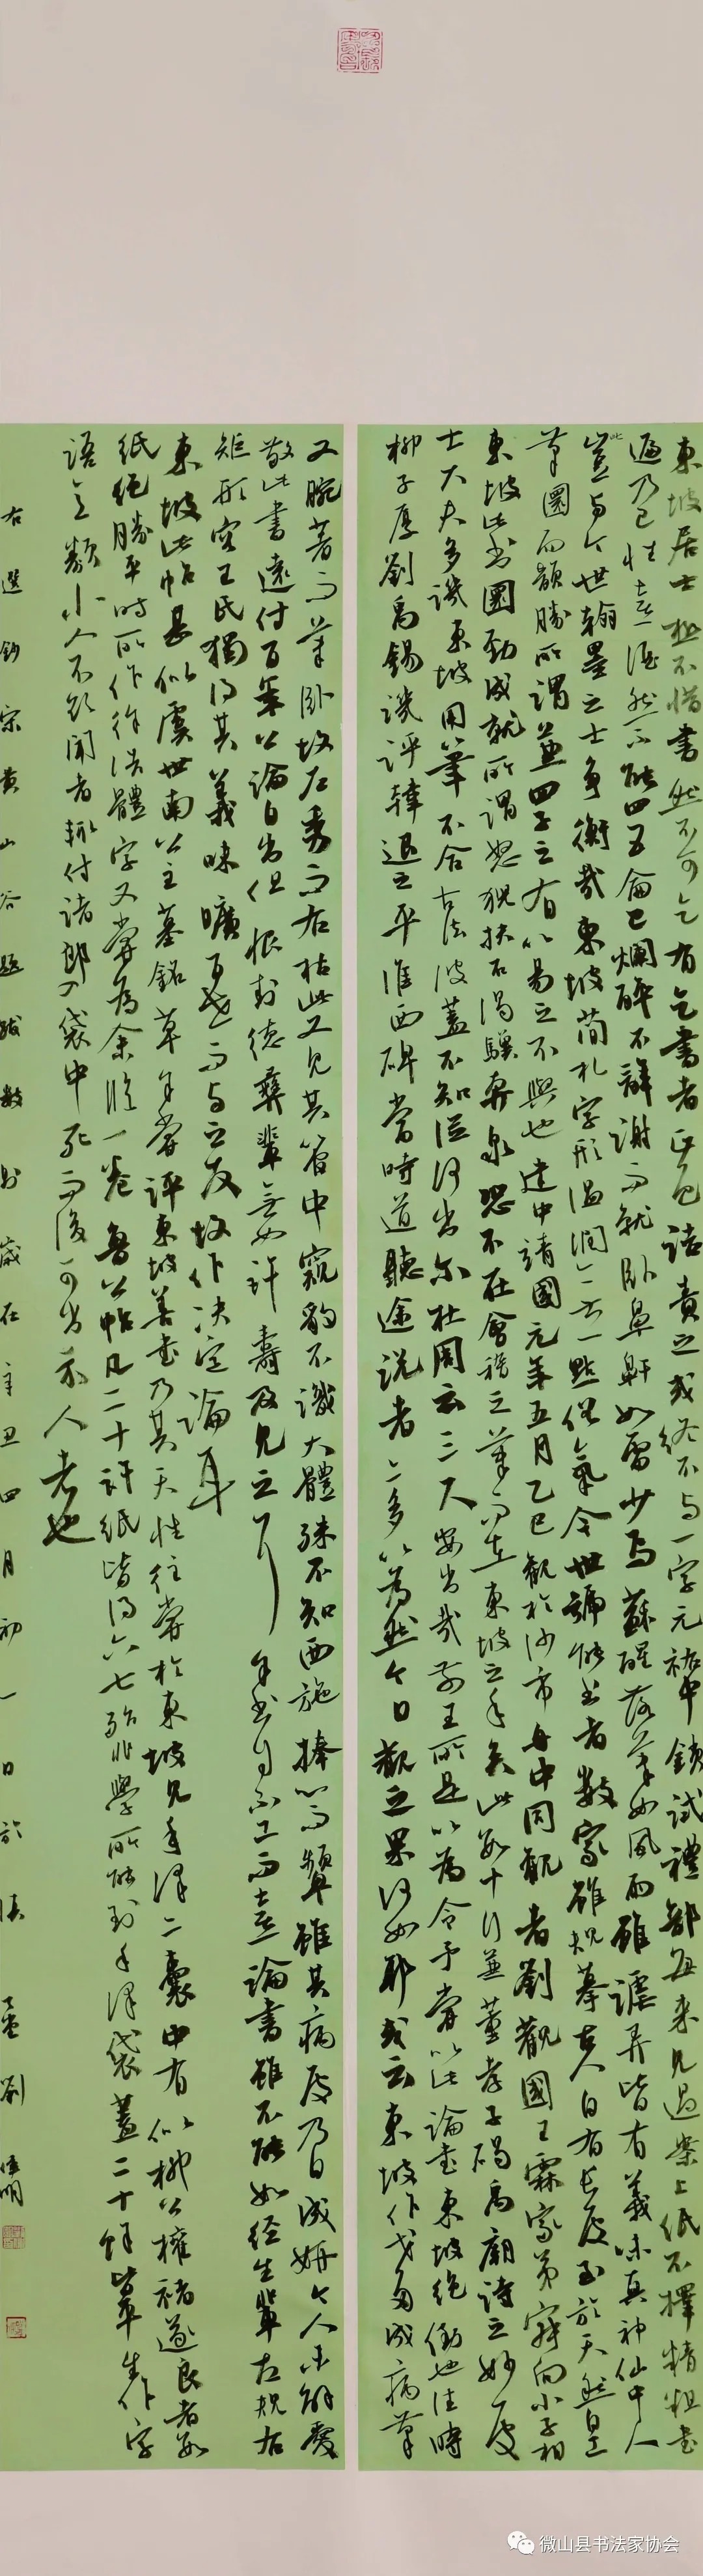 東坡居士極不惜書然不可乞有乞書者正色詰責之或終不与一字元祐中鎖試禮部每来見過案上紙不擇精粗書
遍乃已性喜酒然不能四五龠已爛醉不辭謝而就卧鼻鼾如雷少焉蘇醒落筆如風雨雖謔弄皆有義味真神仙中人
此豈与今世翰墨之士争衡哉東坡簡札字形温潤無一點俗氣今世號能書者數家雖規摹古人自有長處至於天然自工
筆圓而韻勝所謂兼四子之有以易之不與也建中靖國元年五月乙巳觀於沙市舟中同觀者劉觀國王霖家弟叔向小子相
東坡此書圓勁成就所謂怒猊抉石渴驥奔泉恐不在會稽之筆而在東坡之手矣此數十行兼董孝子碣禹廟詩之妙處
士大夫多譏東坡用筆不合古法彼蓋不知從何出尔杜周云三尺安出哉前王所是以為令予嘗以此論書東坡絶倒也往時
柳子厚劉禹錫譏評韓退之平淮西碑當時道聽途説者亦多以為然今日觀之果何如耶或云東坡作戈多成病筆
又腕著而筆卧故左秀而右枯此又見其管中窺豹不識大體殊不知西施捧心而顰雖其病處乃自成妍今人未解愛
敬此書遠付百年公論自出但恨封德彝輩無如許壽及見之耳余書自不工而喜論書雖不能如經生輩左規右
矩形容王氏獨得其義味曠百世而与之友故作决定論耳
東坡此帖甚似虞世南公主墓銘草余嘗評東坡善書乃其天性往嘗於東坡見手澤二囊中有似柳公權褚遂良者數
紙绝勝平時所作徐浩體字又嘗為余臨一卷魯公帖凡二十許紙皆得六七殆非學所能到手澤袋蓋二十餘皆平生作字
語意類小人不欲聞者輒付諸郎入袋中死而後可出示人者也
右選鈔宋黄山谷題跋數則歲在辛丑四月初一日於 劉 明
微山县书法家协会